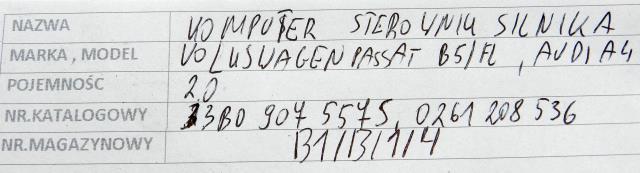 NAZWA KOMPUTER STEROWNIK SILNIKA
MARKA , MODEL VOLKSWAGEN PASSAT B5/FL , AUDI A4
POJEMNOŚĆ 2,0
NR.KATALOGOWY 3B0 907 557S, 0261 208 536
NR.MAGAZYNOWY B1/B/1/4